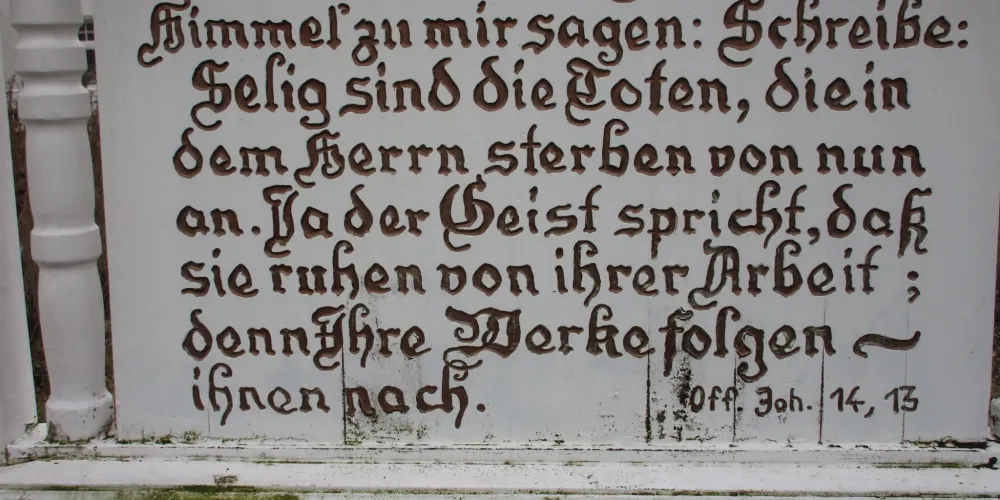 Himmel zu mir sagen: Schreibe:
Selig sind die Toten, die in
dem Herrn sterben von nun
an. Ja der Geist spricht, daß
sie ruhen von ihrer Arbeit ;
denn Ihre Werke folgen ~
ihnen nach.
Off. Joh. 14, 13